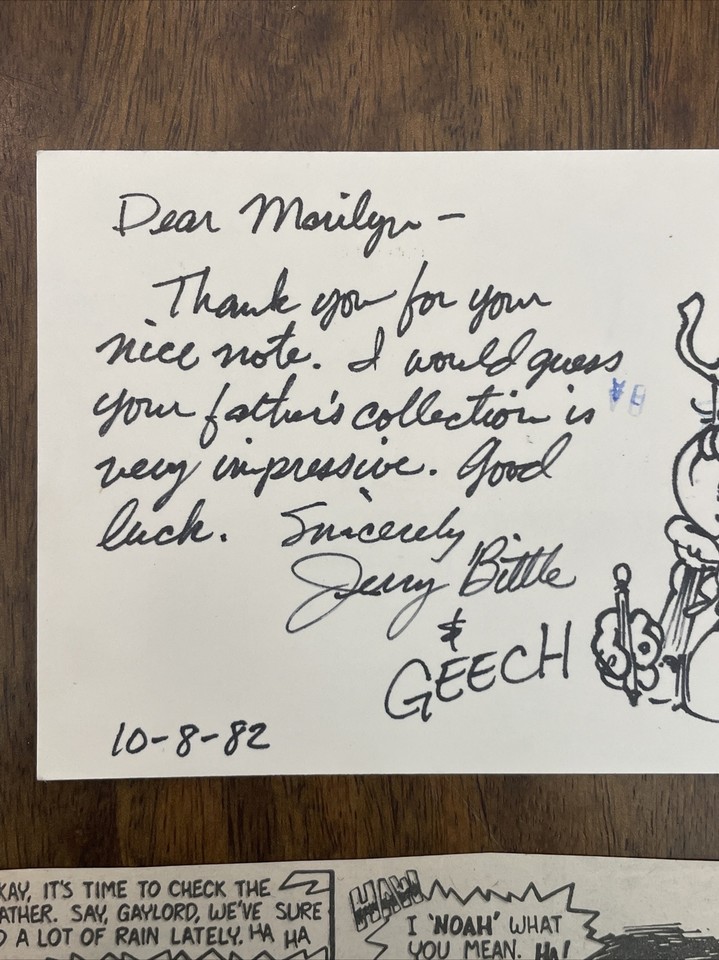 Dear Marilyn –
Thank you for your
nice note. I would guess
your father's collection is
very impressive. Good
luck. Sincerely
Jerry Bittle
&
GEECH
10-8-82
KAY, IT'S TIME TO CHECK THE
ATHER. SAY, GAYLORD, WE'VE SURE
A LOT OF RAIN LATELY. HA HA
HAW
I 'NOAH' WHAT
YOU MEAN. HA!